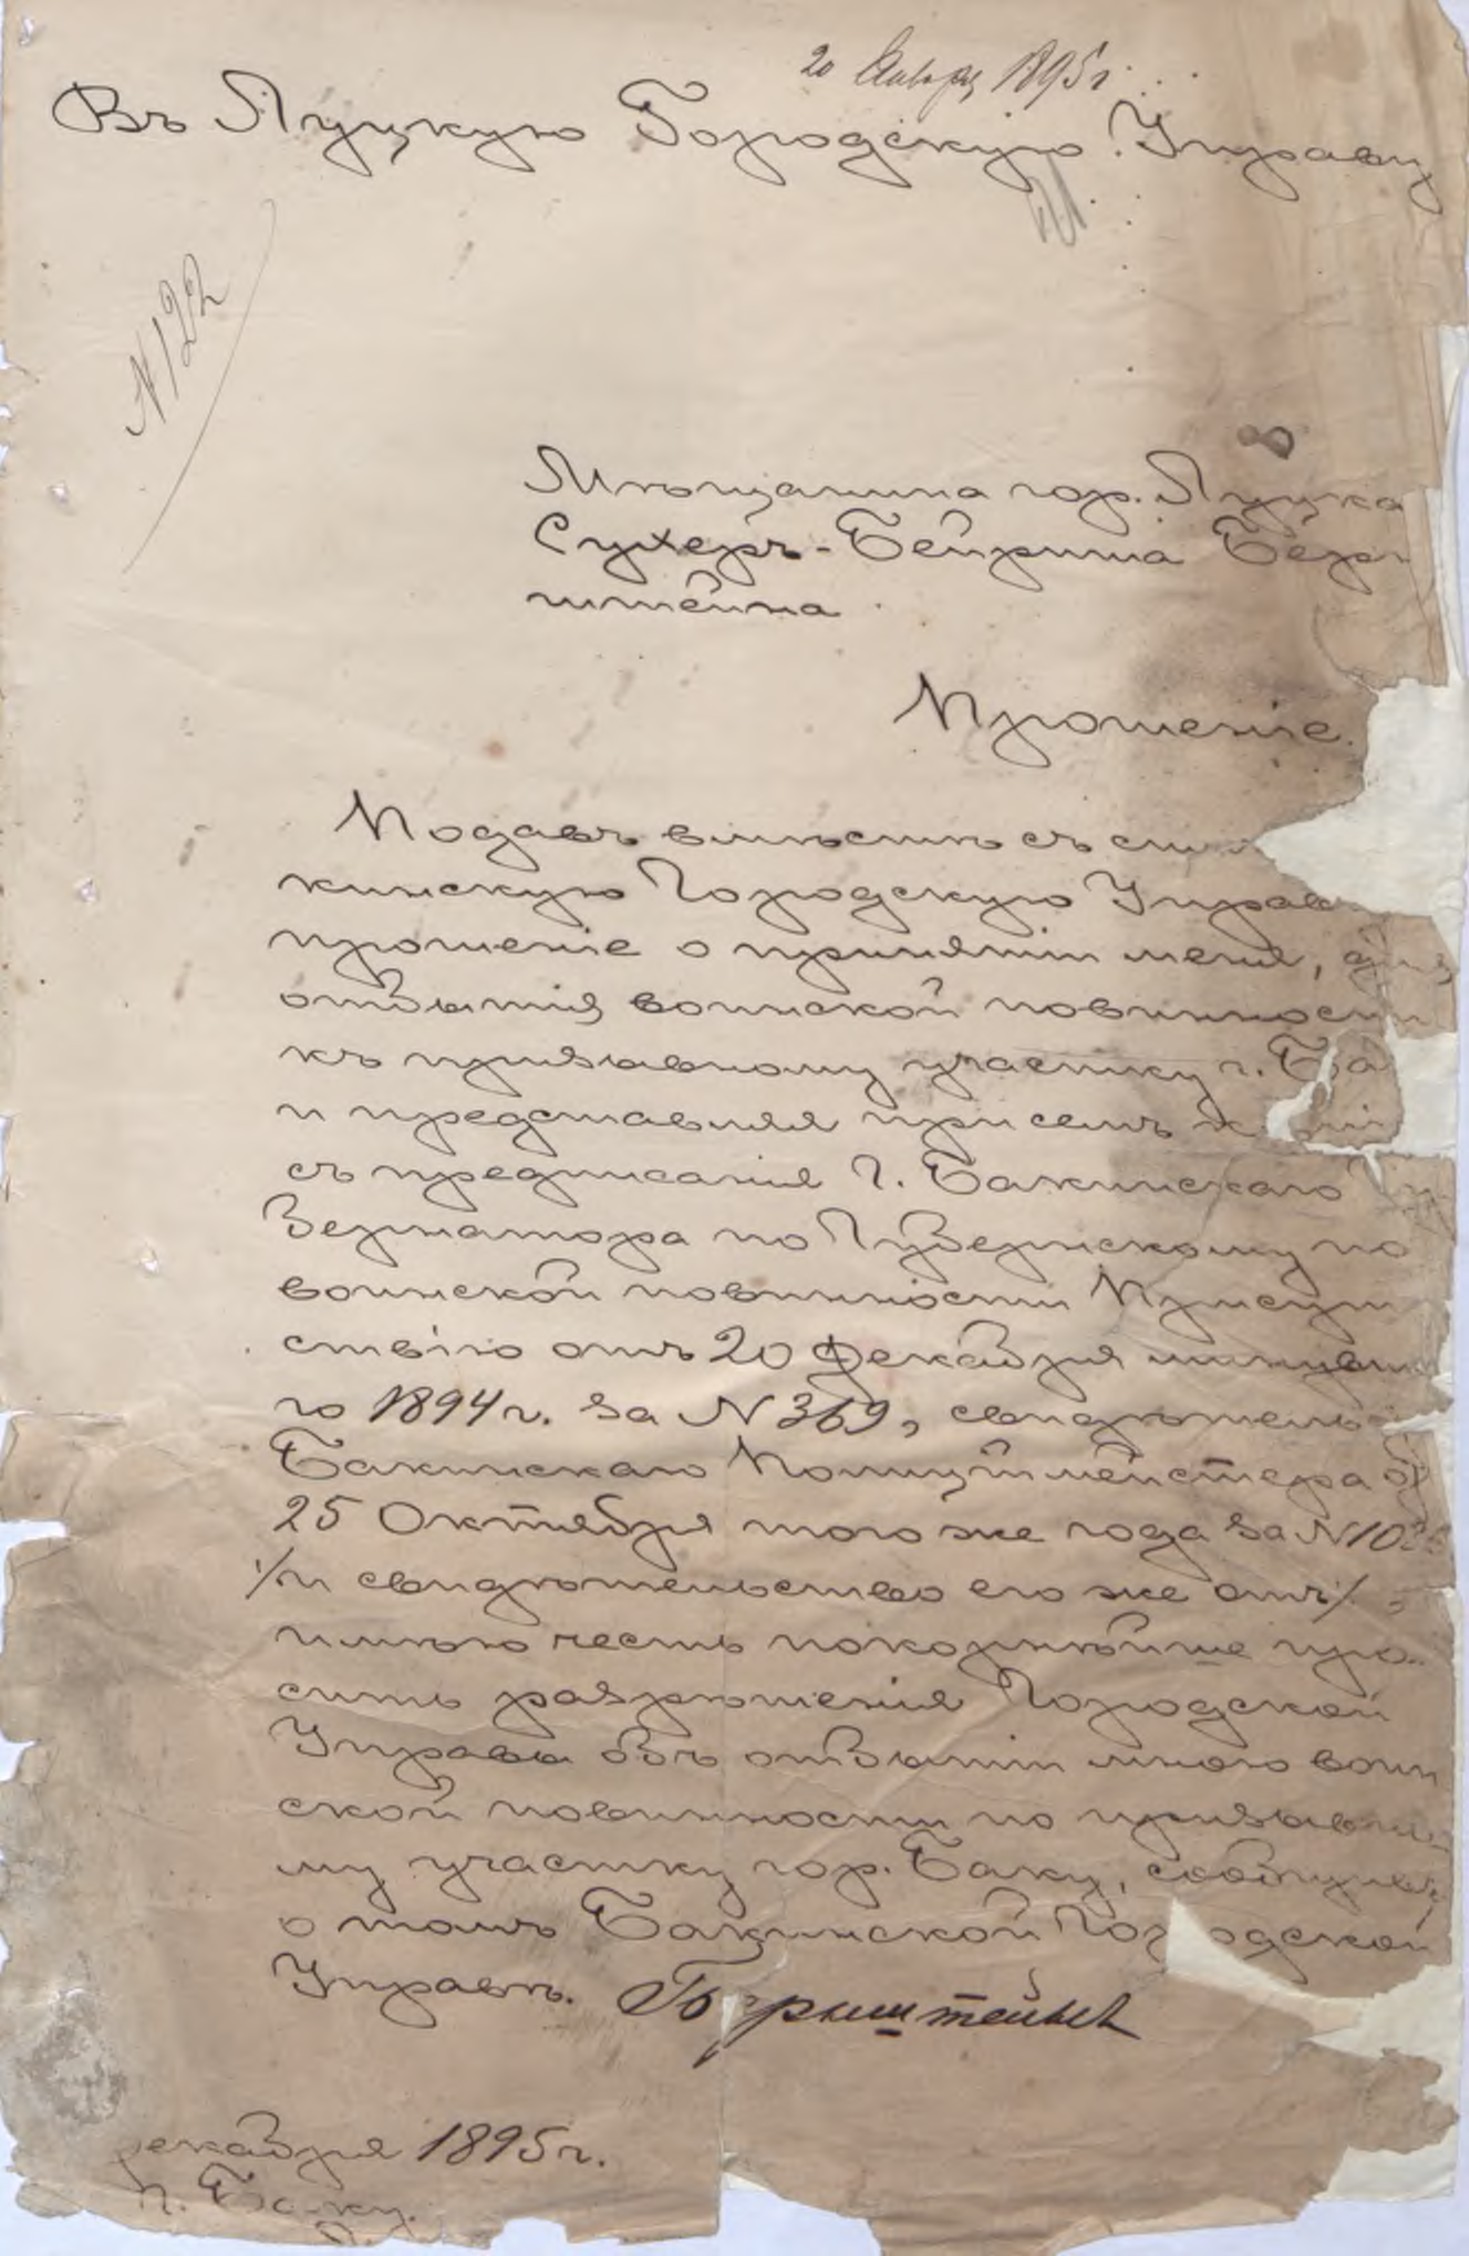 20 Января 1895 г.
Въ Луцкую Городскую Управу
N 122
Мѣщанина гор. Луцка
Сухеръ-Бейриша Бер
штейна
Прошеніе.
Подавъ вмѣстѣ съ симъ
кинскую Городскую Управу
прошеніе о принятіи меня, для
отбытія воинской повинности
къ призывному участку г. Ба
и представляя при семъ копіи
съ предписанія Г. Бакинскаго Гу
бернатора по Губернскому по
воинской повинности Присут
ствію отъ 20 Декабря минувша
го 1894 г. за N 369, свидѣтель
Бакинскаго Полицiймейстера от
25 Октября того же года за N
и свидѣтельство его же отъ
имѣю честь покорнѣйше про
сить разрѣшенія Городской
Управы объ отбытіи мною воин
ской повинности по призывно
му участку гор. Баку, сообщивъ
о томъ Бакинской Городской
Управѣ. Бернштейнъ
екабря 1895 г.
г. Баку.